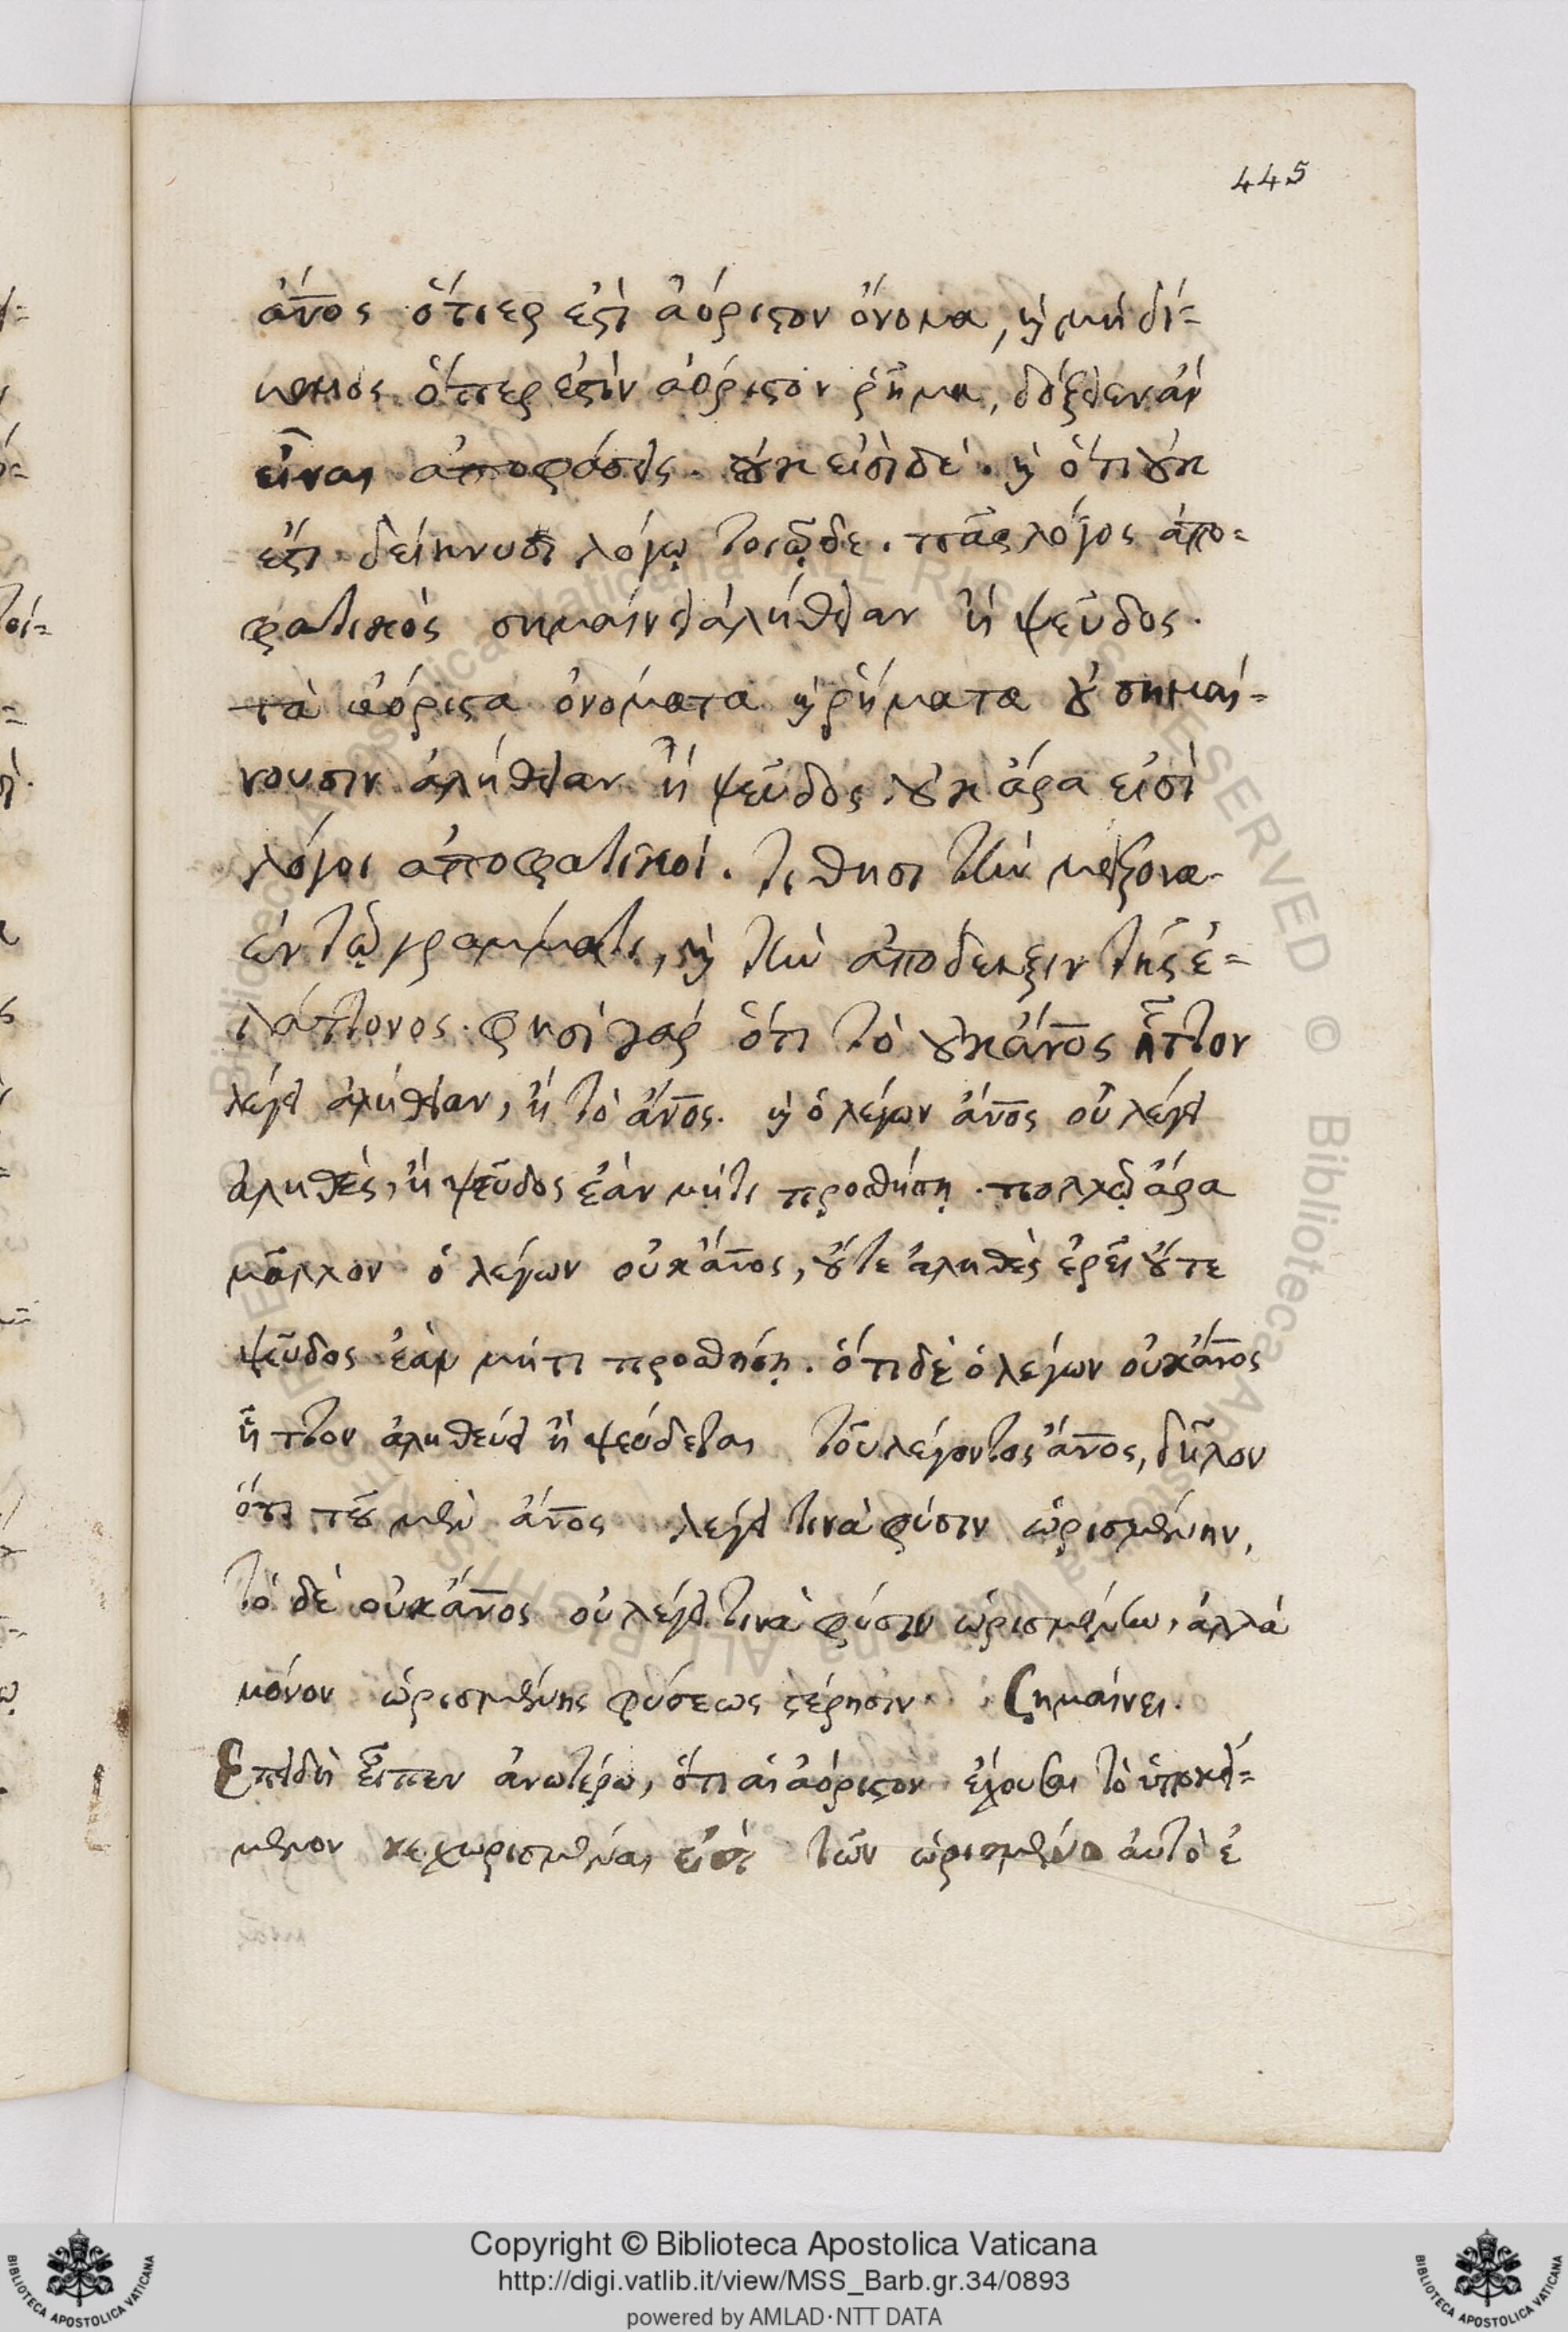 445
ἄνος ὅπερ ἐστὶ ἀόριστον ὄνομα, καὶ μὴ δί=
καιος ὅπερ ἐστὶν ἀόριστον ῥῆμα, δόξειεν ἂν
εἶναι ἀποφάσεις. οὐκ εἰσὶ δέ. καὶ ὅτι οὐκ
ἔστι δείκνυσι λόγῳ τοιῷδε. πᾶς λόγος ἀπο=
φατικὸς σημαίνει ἀλήθειαν ἢ ψεῦδος.
τὰ ἀόριστα ὀνόματα καὶ ῥήματα οὐ σημαί=
νουσιν ἀλήθειαν ἢ ψεῦδος. οὐκ ἄρα εἰσὶ
λόγοι ἀποφατικοί. τίθησι τὴν μείζονα
ἐν τῷ γράμματι, καὶ τὴν ἀπόδειξιν τῆς ἐ=
λάττονος. φησὶ γὰρ ὅτι τὸ οὐκ ἄνος ἧττον
λέγει ἀλήθειαν, ἢ τὸ ἄνος. καὶ ὁ λέγων ἄνος οὐ λέγει
ἀληθὲς, ἢ ψεῦδος ἐὰν μήτι προσθήσῃ. πολλῷ ἄρα
μᾶλλον ὁ λέγων οὐκ ἄνος, οὔτε ἀληθὲς ἐρεῖ οὔτε
ψεῦδος ἐὰν μήτι προσθήσῃ. ὅτι δὲ ὁ λέγων οὐκ ἄνος
ἧττον ἀληθεύει ἢ ψεύδεται τοῦ λέγοντος ἄνος, δῆλον
ὅτι τοῦ μὲν ἄνος λέγει τινὰ φύσιν ὡρισμένην,
τὸ δὲ οὐκ ἄνος οὐ λέγει τινὰ φύσιν ὡρισμένην, ἀλλὰ
μόνον ὡρισμένης φύσεως στέρησιν σημαίνει.
Ἐπειδὴ εἶπεν ἀνωτέρω, ὅτι αἱ ἀόριστον ἔχουσαι τὸ ὑποκεί=
μενον κεχωρισμέναι εἰσὶ τῶν ὡρισμένο αὐτὸ ἐ
Copyright © Biblioteca Apostolica Vaticana
http://digi.vatlib.it/view/MSS_Barb.gr.34/0893
powered by AMLAD·NTT DATA